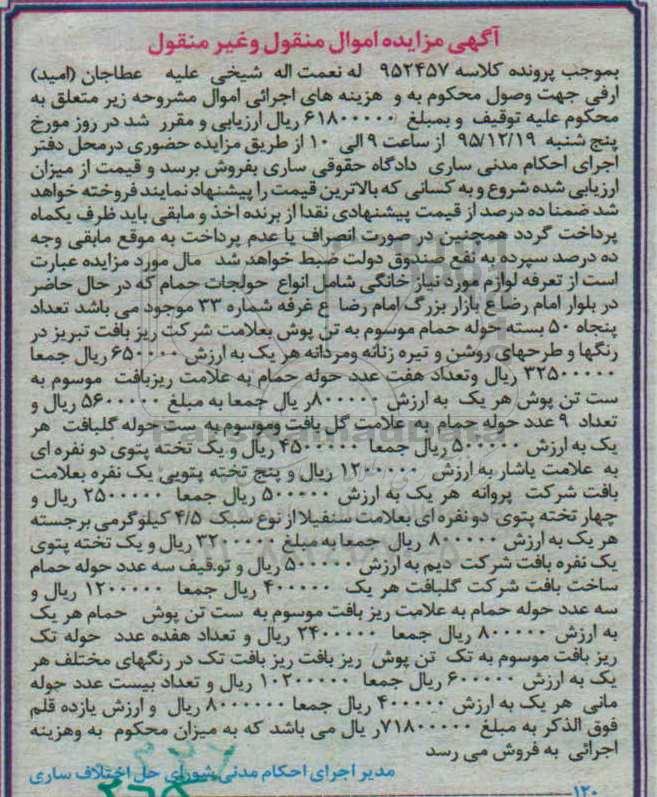 آگهی مزایده اموال منقول وغیر منقول
بموجب پرونده کلاسه ۹۵۲۴۵۷ له نعمت اله شیخی علیه عطاجان (امید)
ارفی جهت وصول محکوم به و هزینه های اجرائی اموال مشروحه زیر متعلق به
محکوم علیه توقیف و بمبلغ ۶۱۸۰۰۰۰۰ ریال ارزیابی و مقرر شد در روز مورخ
پنج شنبه ۹۵/۱۲/۱۹ از ساعت ۹ الی ۱۰ از طریق مزایده حضوری درمحل دفتر
اجرای احکام مدنی ساری دادگاه حقوقی ساری بفروش برسد و قیمت از میزان
ارزیابی شده شروع و به کسانی که بالاترین قیمت را پیشنهاد نمایند فروخته خواهد
شد ضمنا ده درصد از قیمت پیشنهادی نقدا از برنده اخذ و مابقی باید ظرف یکماه
پرداخت گردد همچنین در صورت انصراف یا عدم پرداخت به موقع مابقی وجه
ده درصد سپرده به نفع صندوق دولت ضبط خواهد شد مال مورد مزایده عبارت
است از تعرفه لوازم مورد نیاز خانگی شامل انواع حولجات حمام که در حال حاضر
در بلوار امام رضا ع بازار بزرگ امام رضا ع غرفه شماره ۳۳ موجود می باشد تعداد
پنجاه ۵۰ بسته حوله حمام موسوم به تن پوش بعلامت شرکت ریز بافت تبریز در
رنگها و طرحهای روشن و تیره زنانه ومردانه هر یک به ارزش ۶۵۰۰۰۰ ریال جمعا
۳۲۵۰۰۰۰۰ ریال وتعداد هفت عدد حوله حمام به علامت ریزبافت موسوم به
ست تن پوش هر یک به ارزش ۸۰۰۰۰۰ر یال جمعا به مبلغ ۵۶۰۰۰۰۰ ریال و
تعداد ۹ عدد حوله حمام به علامت گل بافت وموسوم به ست حوله گلبافت هر
یک به ارزش ۵۰۰۰۰۰ ریال جمعا ۴۵۰۰۰۰۰ ریال و یک تخته پتوی دو نفره ای
به علامت یاشار به ارزش ۱۲۰۰۰۰۰ ریال و پنج تخته پتویی یک نفره بعلامت
بافت شرکت پروانه هر یک به ارزش ۵۰۰۰۰۰ ریال جمعا ۲۵۰۰۰۰۰ ریال و
چهار تخته پتوی دو نفره ای بعلامت سنفیلا از نوع سبک ۴/۵ کیلوگرمی برجسته
هر یک به ارزش ۸۰۰۰۰۰ ریال جمعا به مبلغ ۳۲۰۰۰۰۰ ریال و یک تخته پتوی
یک نفره بافت شرکت دیم به ارزش ۵۰۰۰۰۰ ریال و توقیف سه عدد حوله حمام
ساخت بافت شرکت گلبافت هر یک ۴۰۰۰۰۰ ریال جمعا ۱۲۰۰۰۰۰ ریال و
سه عدد حوله حمام به علامت ریز بافت موسوم به ست تن پوش حمام هر یک
به ارزش ۸۰۰۰۰۰ ریال جمعا ۲۴۰۰۰۰۰ ریال و تعداد هفده عدد حوله تک
ریز بافت موسوم به تک تن پوش ریز بافت ریز بافت تک در رنگهای مختلف هر
یک به ارزش ۶۰۰۰۰۰ ریال جمعا ۱۰۲۰۰۰۰۰ ریال و تعداد بیست عدد حوله
مانی هر یک به ارزش ۴۰۰۰۰۰ ریال جمعا ۸۰۰۰۰۰۰ ریال و ارزش یازده قلم
فوق الذکر به مبلغ ۷۱۸۰۰۰۰۰ر یال می باشد که به میزان محکوم به وهزینه
اجرائی به فروش می رسد
مدیر اجرای احکام مدنی شورای حل اختلاف ساری
۱۲۰